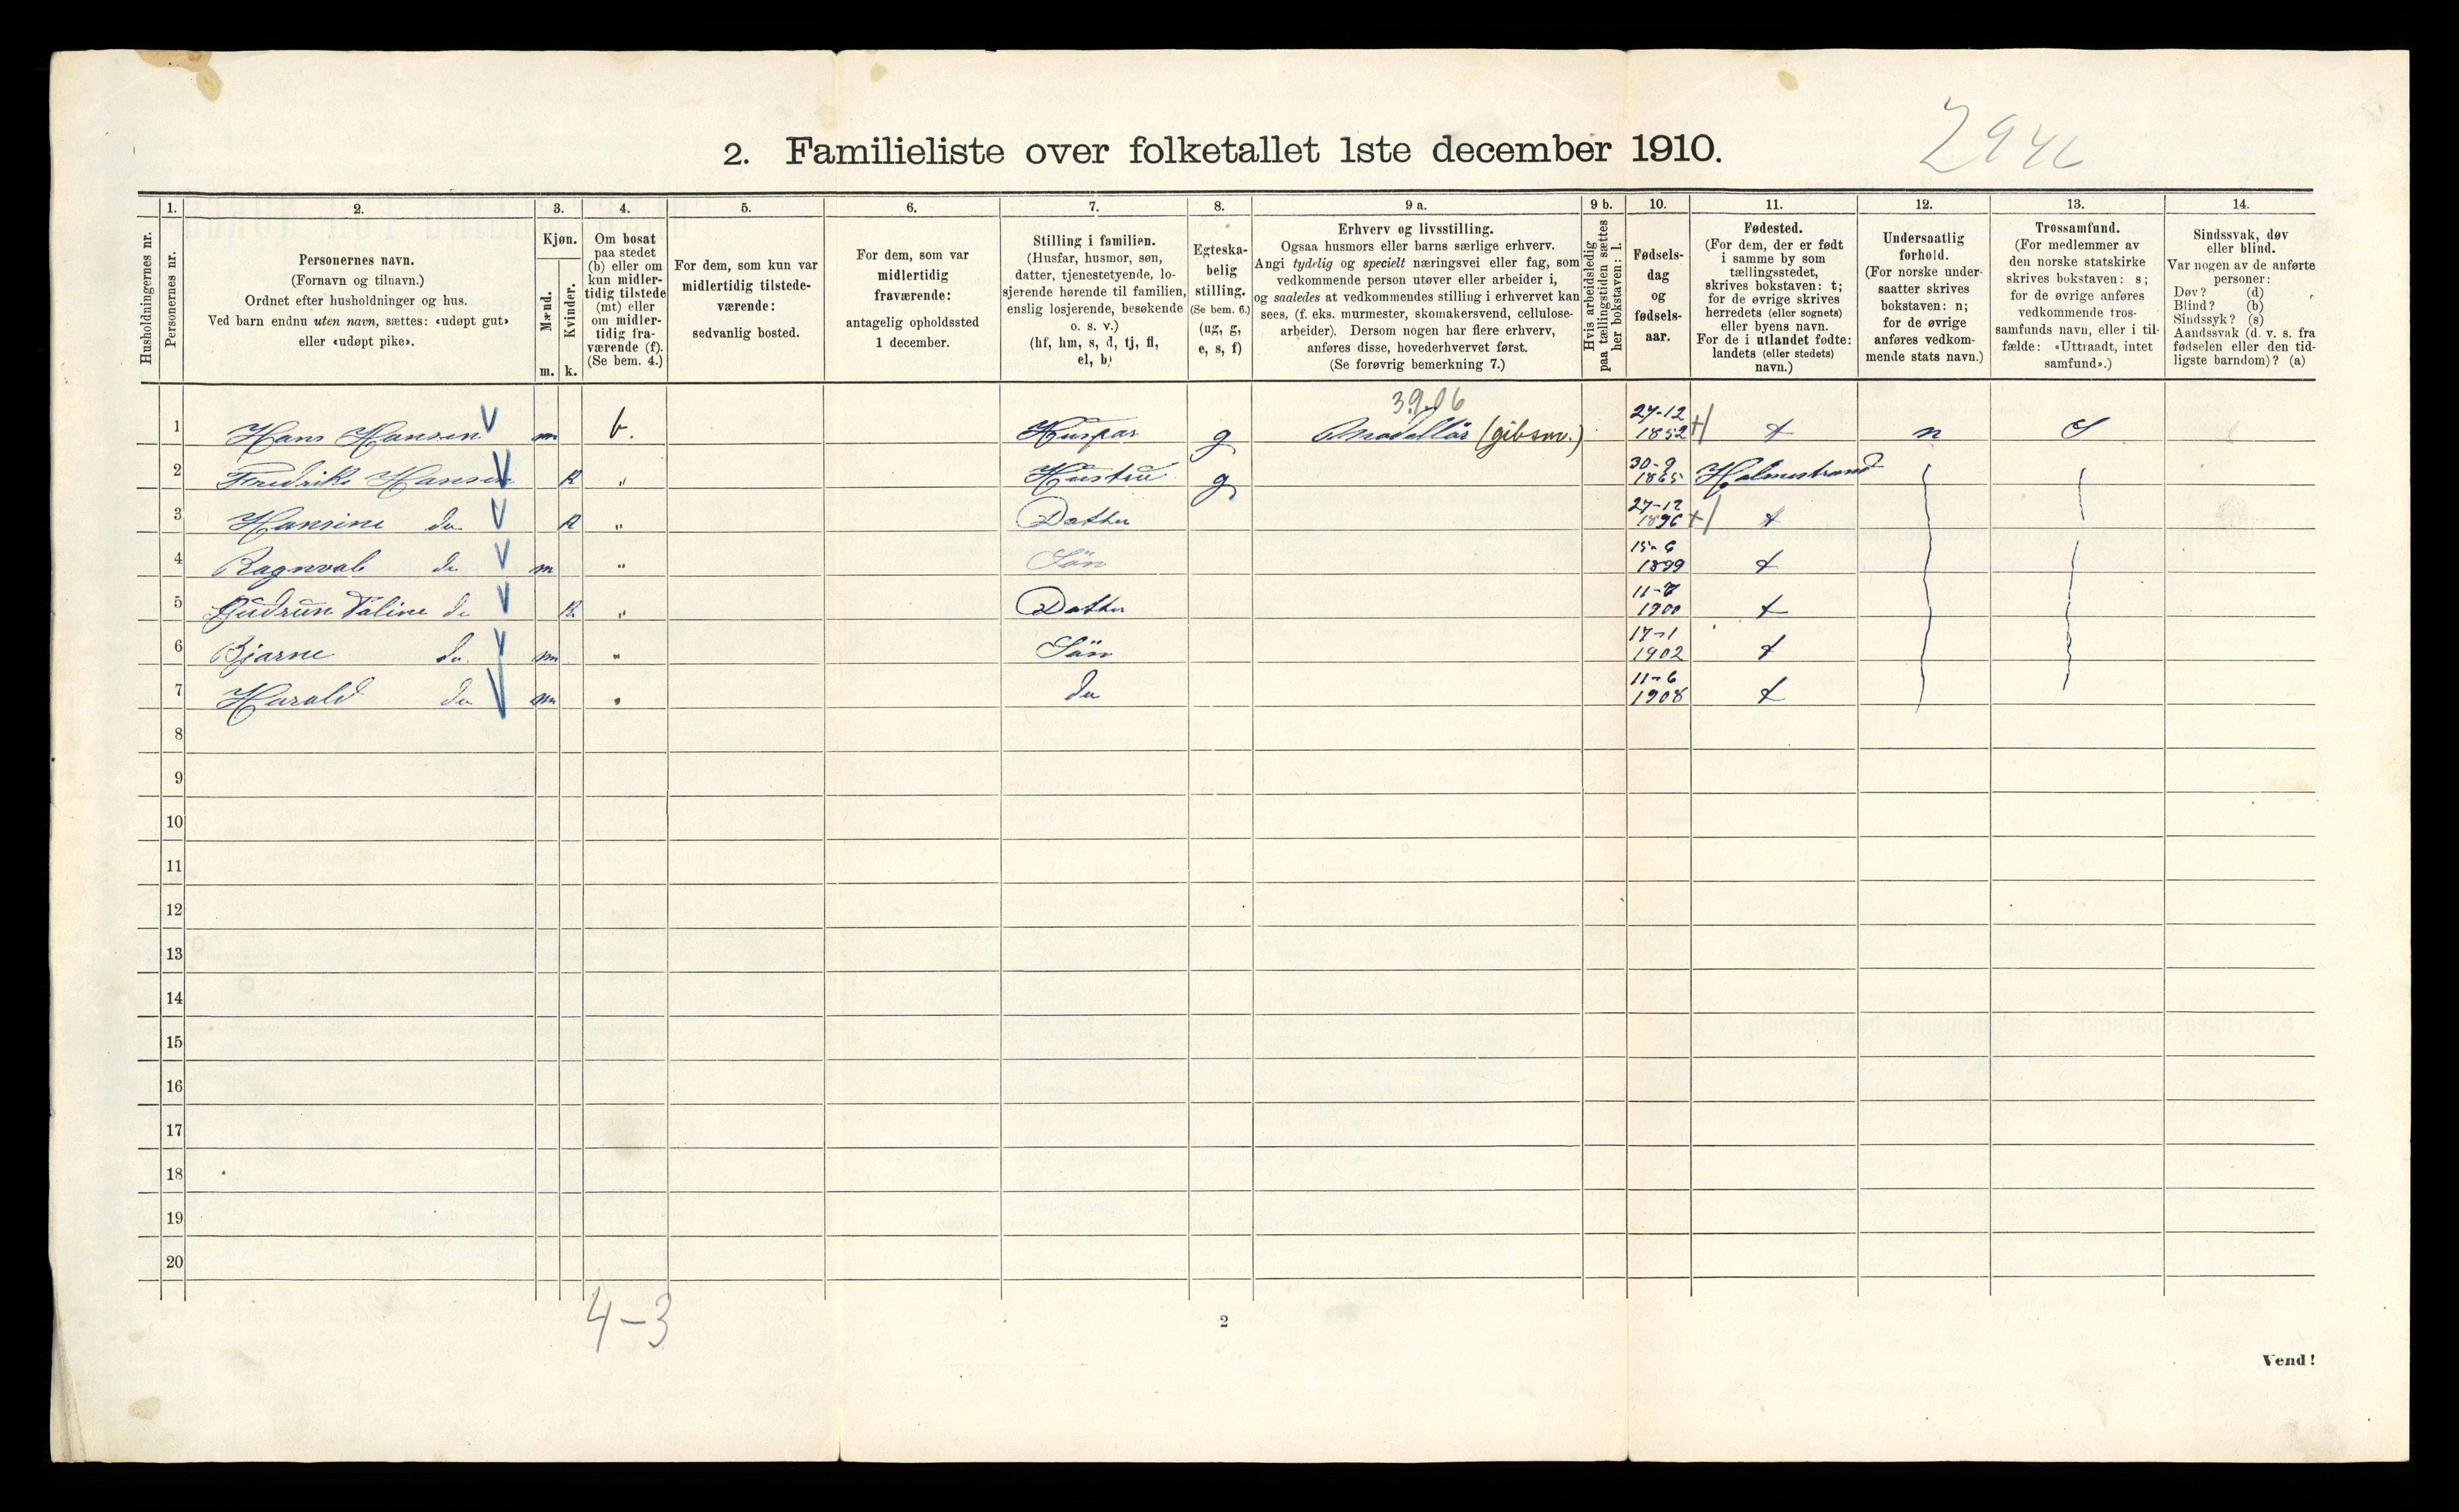 2. Familieliste over folketallet 1ste december 1910.
Husholdningernes nr.
1.
Personernes nr.
2.
Personernes navn.
(Fornavn og tilnavn.)
Ordnet efter husholdninger og hus.
Ved barn endnu uten navn, sættes: «udøpt gut»
eller «udøpt pike».
3.
Kjøn.
Mænd.
Kvinder.
m. k.
4.
Om bosat
paa stedet
(b) eller om
kun midler-
tidig tilstede
(mt) eller
om midler-
tidig fra-
værende (f).
(Se bem. 4.)
5.
For dem, som kun var
midlertidig tilstede-
værende:
sedvanlig bosted.
6.
For dem, som var
midlertidig
fraværende:
antagelig opholdssted
1 december.
7.
Stilling i familien.
(Husfar, husmor, søn,
datter, tjenestetyende, lo-
sjerende hørende til familien,
enslig losjerende, besøkende
o. s. v.)
(hf, hm, s, d, tj, fl,
el, b)
8.
Egteska-
belig
stilling.
(Se bem. 6.)
(ug, g,
e, s, f)
9 a.
Erhverv og livsstilling.
Ogsaa husmors eller barns særlige erhverv.
Angi tydelig og specielt næringsvei eller fag, som
vedkommende person utøver eller arbeider i,
og saaledes at vedkommendes stilling i erhvervet kan
sees, (f. eks. murmester, skomakersvend, cellulose-
arbeider). Dersom nogen har flere erhverv,
anføres disse, hovederhvervet først.
(Se forøvrig bemerkning 7.)
9 b.
Hvis arbeidsledig
paa tællingstiden sættes
her bokstaven: l.
10.
Fødsels-
dag
og
fødsels-
aar.
11.
Fødested.
(For dem, der er født
i samme by som
tællingsstedet,
skrives bokstaven: t;
for de øvrige skrives
herredets (eller sognets)
eller byens navn.
For de i utlandet fødte:
landets (eller stedets)
navn.)
12.
Undersaatlig
forhold.
(For norske under-
saatter skrives
bokstaven: n;
for de øvrige
anføres vedkom-
mende stats navn.)
13.
Trossamfund.
(For medlemmer av
den norske statskirke
skrives bokstaven: s;
for de øvrige anføres
vedkommende tros-
samfunds navn, eller i til-
fælde: «Uttraadt, intet
samfund».)
14.
Sindssvak, døv
eller blind.
Var nogen av de anførte
personer:
Døv? (d)
Blind? (b)
Sindssyk? (s)
Aandssvak (d. v. s. fra
fødselen eller den tid-
ligste barndom)? (a)
1 Hans Hansen m b. Husfar g (gibsm.) 27-12 1852 t n S
2 Fredrikke Hansen k " Hustru g 30-9 1865 Holmestrand
3 Hansine do k " Datter 27-12 1896 t
4 Ragnvald do m " Sön 15-6 1899 t
5 Gudrun do k " Datter 1900 t
6 Bjarne do. m " Sön 17-1 1902 t
7 Harald do m " do 11-6 1908 t
8
9
10
11
12
13
14
15
16
17
18
19
20
4-3
2
Vend!